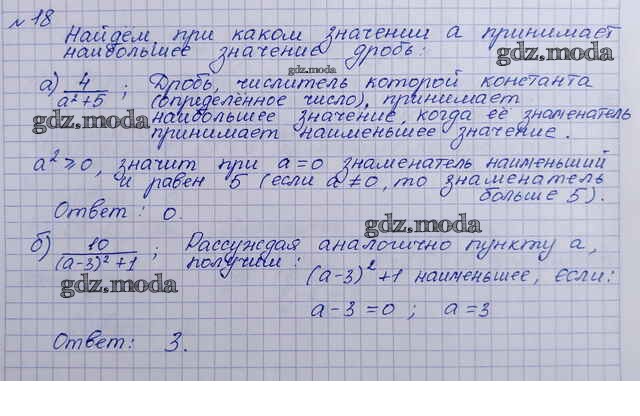 № 18
Найдём, при каком значении a принимает
наибольшее значение дробь:
gdz.moda
gdz.moda
а) 4/(a²+5) ; Дробь, числитель которой константа
(определённое число), принимает
gdz.moda
наибольшее значение, когда её знаменатель
принимает наименьшее значение.
a² ⩾ 0, значит при a = 0 знаменатель наименьший
и равен 5 (если a ≠ 0, то знаменатель
больше 5).
Ответ: 0.
gdz.moda
б) 10/((a-3)²+1) ; Рассуждая аналогично пункту а,
получим:
gdz.moda
(a-3)²+1 наименьшее, если:
a - 3 = 0 ; a = 3
Ответ: 3.